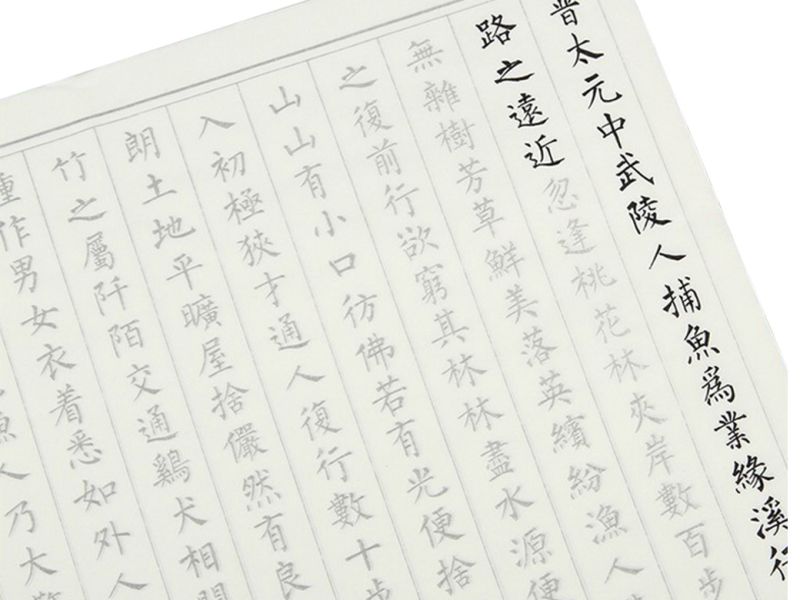 晉太元中武陵人捕魚為業緣溪行
路之遠近忽逢桃花林夾岸數百步
無雜樹芳草鮮美落英繽紛漁人
之復前行欲窮其林林盡水源便
山山有小口彷彿若有光便捨
入初極狹才通人復行數十步
朗土地平曠屋捨儼然有良
竹之屬阡陌交通鷄犬相聞
種作男女衣着悉如外人
漁人乃大驚